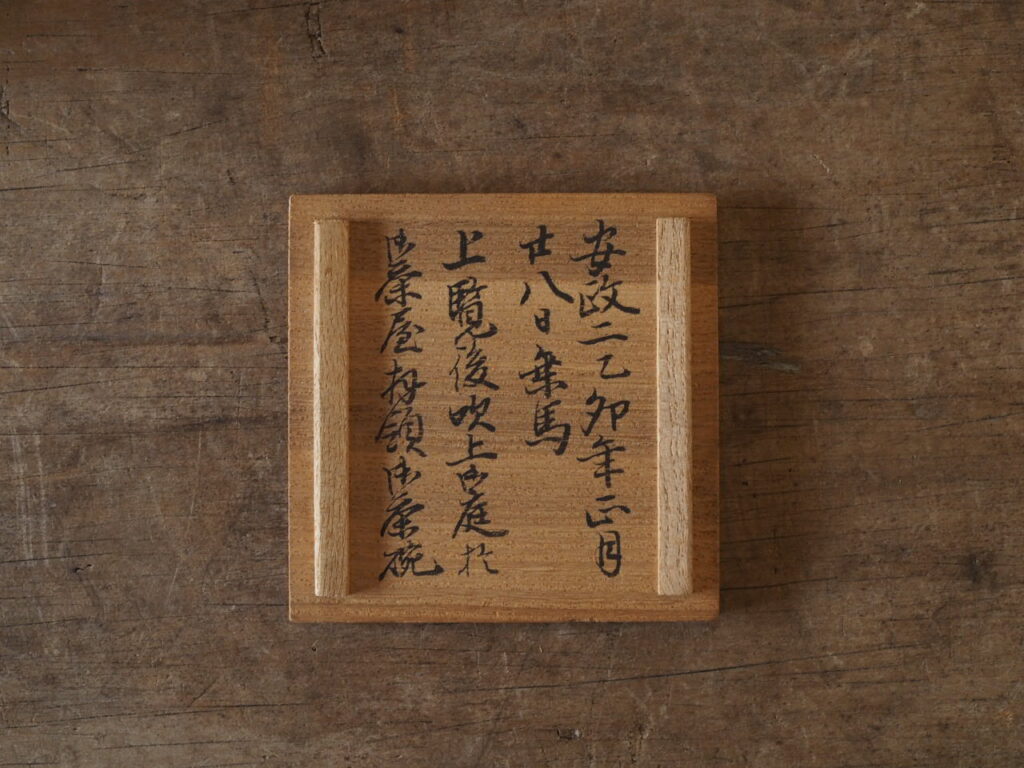 安政二乙卯年正月
廿八日乗馬
上覧後吹上御庭於
御茶屋拝領御茶碗